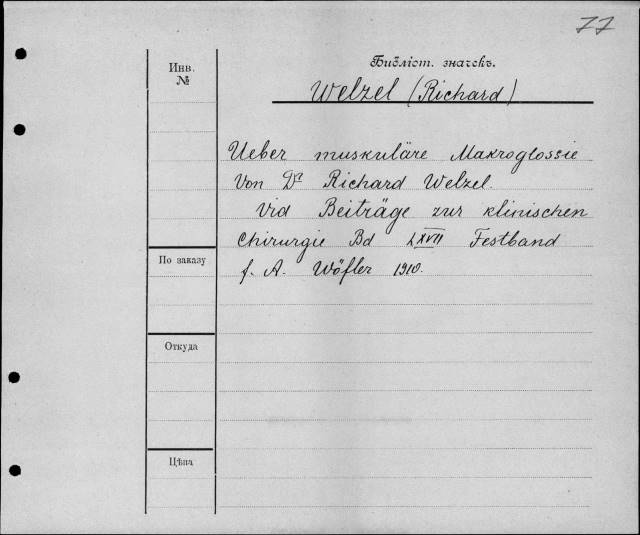 77
Инв.
№
Библіот. значекъ.
Welzel (Richard)
Ueber muskuläre Makroglossie
Von Dr Richard Welzel.
Vid Beiträge zur klinischen
Chirurgie Bd LXVII Festband
f. A. Wöfler 1910.
По заказу
Откуда
Цѣна